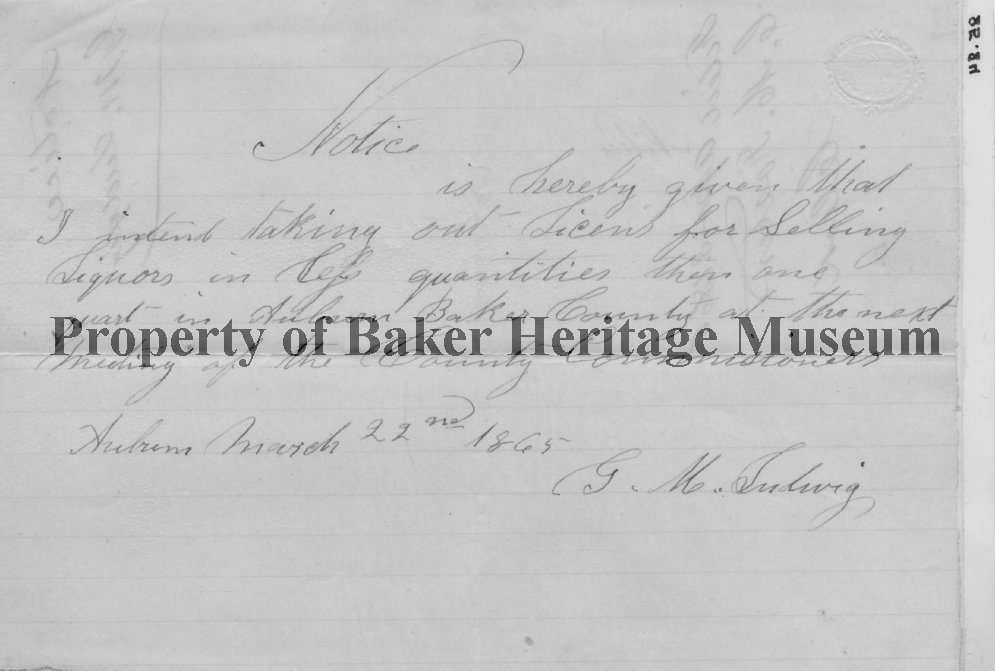 Notice
is hereby given that
I intend taking out Licens for Selling
Liquors in Less quantities then one
quart in Auburn Baker County at the next
Property of Baker Heritage Museum
Meeting of the County Commissioners
Auburn March 22nd 1865
G. M. Ludwig
85.84